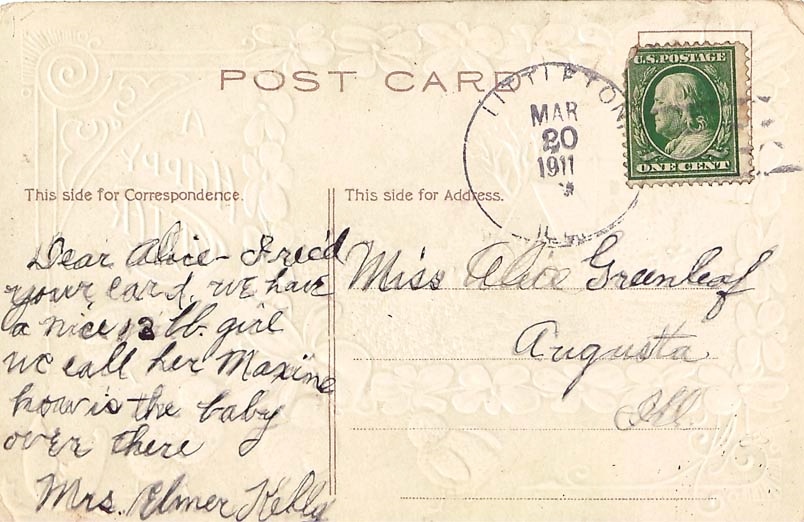 POST CARD
U.S. POSTAGE
ONE CENT
LITTLETON
MAR
20
1911
ILL.
This side for Correspondence.
This side for Address.
Dear Alice - I rec'd
your card, we have
a nice 12 lb. girl
we call her Maxine
how is the baby
over there
Mrs. Elmer Kelly
Miss Alice Greenleaf
Augusta
Ill.
A
HAPPY